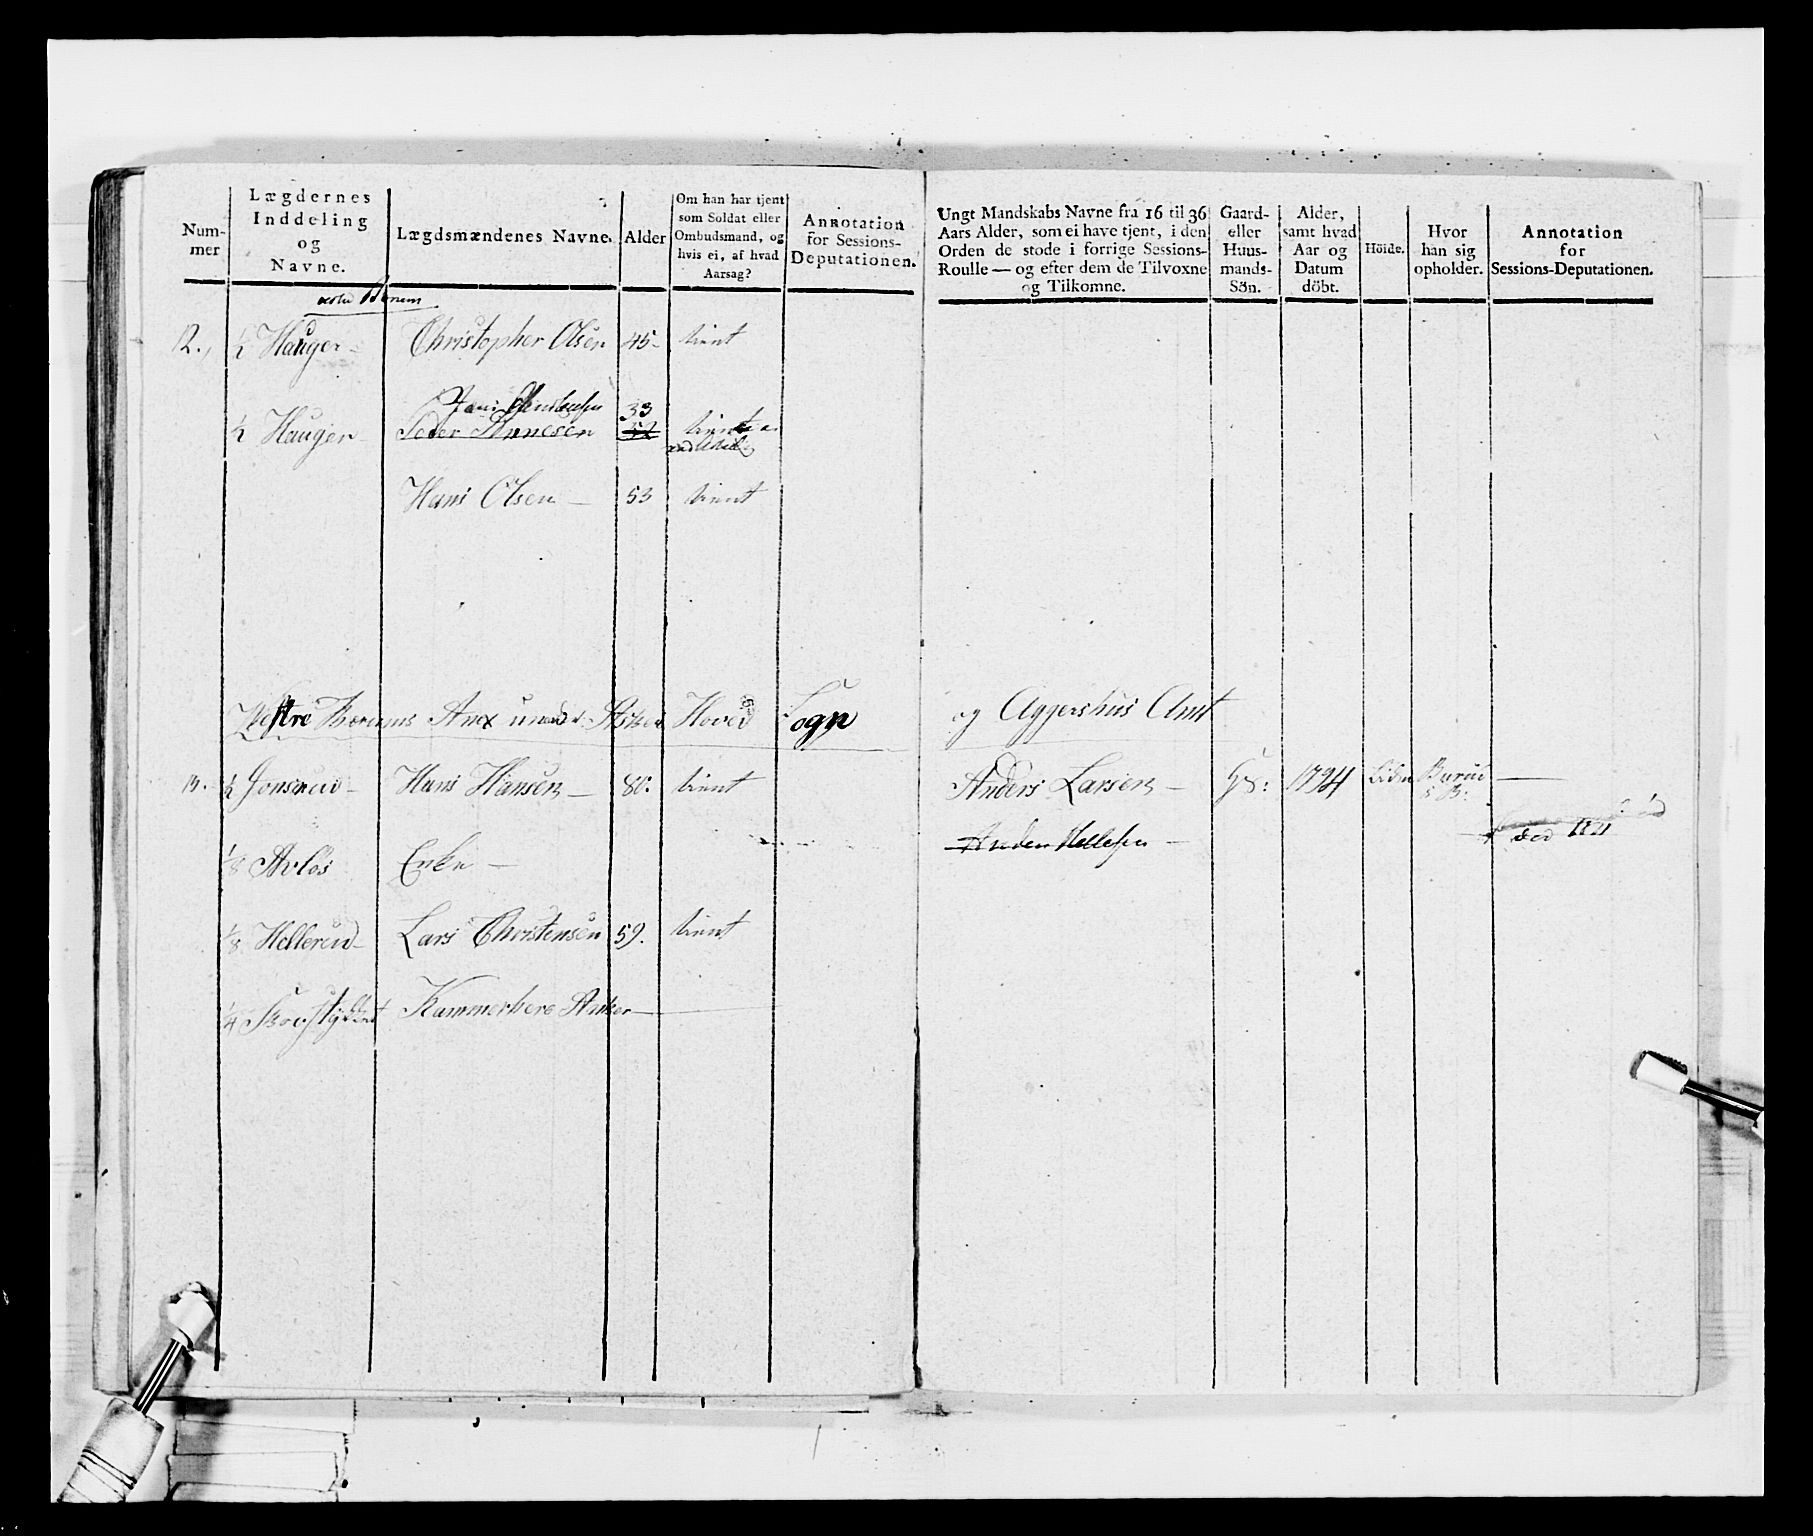 Nummer
Lægdernes Inddeling og Navne.
Lægdsmændenes Navne.
Alder
Om han har tjent som Soldat eller Ombudsmand, og hvis ei, af hvad Aarsag?
Annotation for Sessions-Deputationen.
Ungt Mandskabs Navne fra 16 til 36 Aars Alder, som ei have tjent, i den Orden de stode i forrige Sessions-Roulle — og efter dem de Tilvoxne og Tilkomne.
Gaard- eller Huus-mands-Sön.
Alder, samt hvad Aar og Datum döbt.
Höide.
Hvor han sig opholder.
Annotation for Sessions-Deputationen.
12. ½ Hauger Christopher Olsen 45 tient
33
½ Hauger Peder Hannesen 52 tient
Hans Olsen — 53 tient
Westre Bærums Anx under Asker Hoved Sogn og Aggershus Amt
13. ½ Jonsrud Hans Hansen — 80. tient Anders Larsen — GS: 1794 Burud
Anders Hellesen — død 1821
⅛ Avløs Enke —
⅛ Hellerud Lars Christensen 59. tient
¼ Skovstykket Kammerherre Anker —